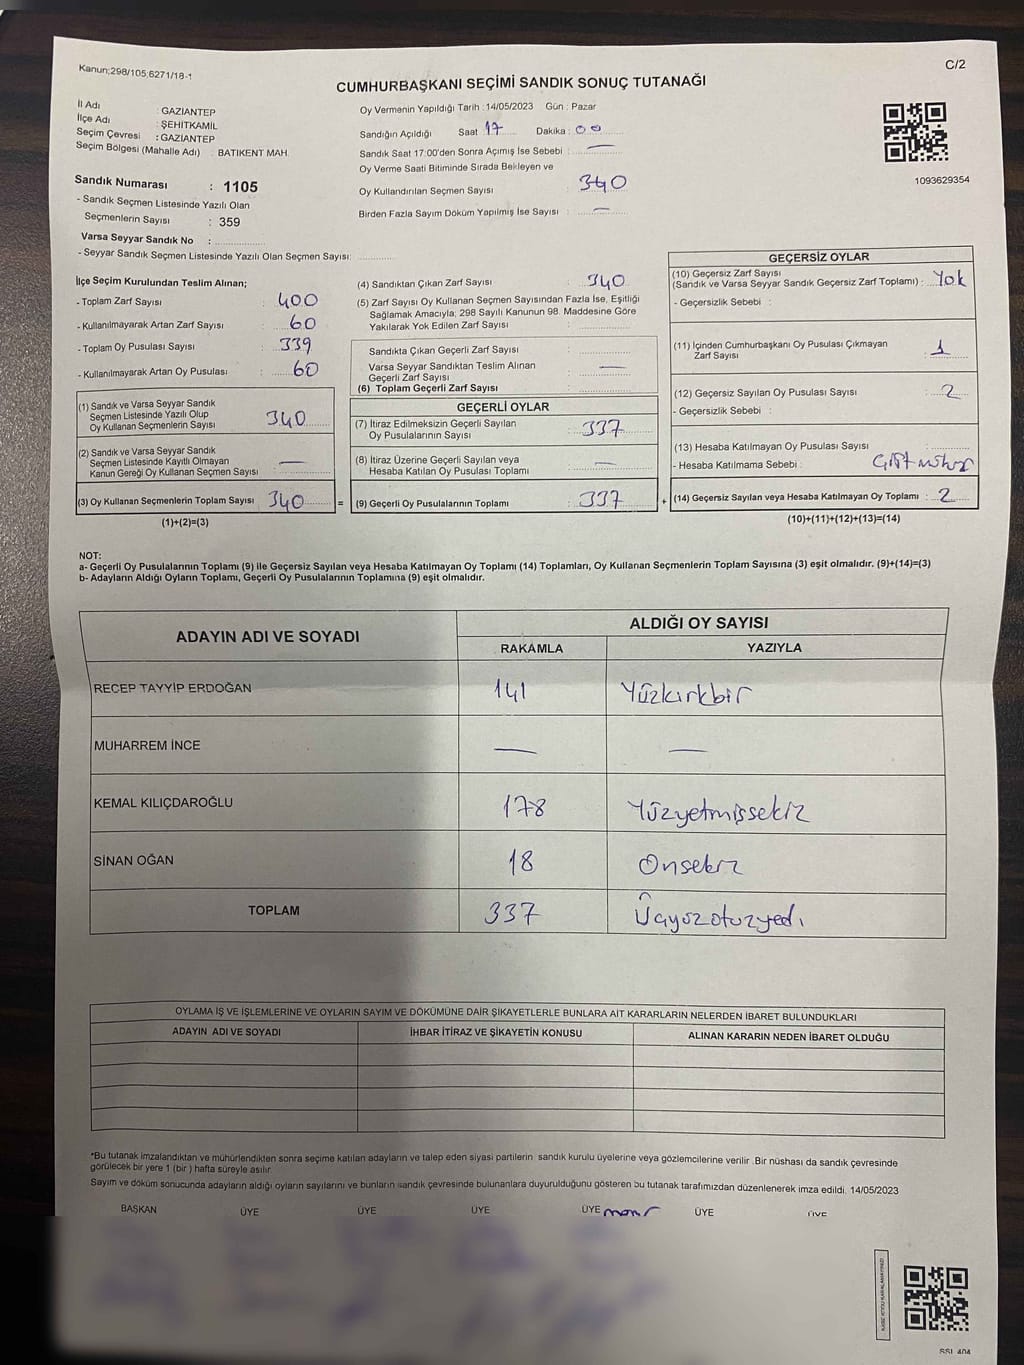 Kanun;298/105;6271/18-1
C/2
CUMHURBAŞKANI SEÇİMİ SANDIK SONUÇ TUTANAĞI
İl Adı : GAZİANTEP
İlçe Adı : ŞEHİTKAMİL
Seçim Çevresi : GAZİANTEP
Seçim Bölgesi (Mahalle Adı) : BATIKENT MAH.
Sandık Numarası : 1105
- Sandık Seçmen Listesinde Yazılı Olan
Seçmenlerin Sayısı : 359
Varsa Seyyar Sandık No :
- Seyyar Sandık Seçmen Listesinde Yazılı Olan Seçmen Sayısı:
Oy Vermenin Yapıldığı Tarih : 14/05/2023 Gün : Pazar
Sandığın Açıldığı Saat 17 Dakika : 00
Sandık Saat 17:00'den Sonra Açımış İse Sebebi : —
Oy Verme Saati Bitiminde Sırada Bekleyen ve
Oy Kullandırılan Seçmen Sayısı : 340
Birden Fazla Sayım Döküm Yapılmış İse Sayısı : —
1093629354
İlçe Seçim Kurulundan Teslim Alınan;
- Toplam Zarf Sayısı : 400
- Kullanılmayarak Artan Zarf Sayısı : 60
- Toplam Oy Pusulası Sayısı : 339
- Kullanılmayarak Artan Oy Pusulası : 60
(1) Sandık ve Varsa Seyyar Sandık
Seçmen Listesinde Yazılı Olup
Oy Kullanan Seçmenlerin Sayısı 340
(2) Sandık ve Varsa Seyyar Sandık
Seçmen Listesinde Kayıtlı Olmayan
Kanun Gereği Oy Kullanan Seçmen Sayısı —
(3) Oy Kullanan Seçmenlerin Toplam Sayısı 340
(1)+(2)=(3)
(4) Sandıktan Çıkan Zarf Sayısı : 340
(5) Zarf Sayısı Oy Kullanan Seçmen Sayısından Fazla İse, Eşitliği
Sağlamak Amacıyla; 298 Sayılı Kanunun 98. Maddesine Göre
Yakılarak Yok Edilen Zarf Sayısı :
Sandıkta Çıkan Geçerli Zarf Sayısı :
Varsa Seyyar Sandıktan Teslim Alınan
Geçerli Zarf Sayısı : —
(6) Toplam Geçerli Zarf Sayısı :
GEÇERLİ OYLAR
(7) İtiraz Edilmeksizin Geçerli Sayılan
Oy Pusulalarının Sayısı : 337
(8) İtiraz Üzerine Geçerli Sayılan veya
Hesaba Katılan Oy Pusulası Toplamı : —
= (9) Geçerli Oy Pusulalarının Toplamı : 337 +
GEÇERSİZ OYLAR
(10) Geçersiz Zarf Sayısı
(Sandık ve Varsa Seyyar Sandık Geçersiz Zarf Toplamı) : Yok
- Geçersizlik Sebebi :
(11) İçinden Cumhurbaşkanı Oy Pusulası Çıkmayan
Zarf Sayısı : 1
(12) Geçersiz Sayılan Oy Pusulası Sayısı : 2
- Geçersizlik Sebebi :
(13) Hesaba Katılmayan Oy Pusulası Sayısı :
- Hesaba Katılmama Sebebi :
(14) Geçersiz Sayılan veya Hesaba Katılmayan Oy Toplamı : 2
(10)+(11)+(12)+(13)=(14)
NOT:
a- Geçerli Oy Pusulalarının Toplamı (9) ile Geçersiz Sayılan veya Hesaba Katılmayan Oy Toplamı (14) Toplamları, Oy Kullanan Seçmenlerin Toplam Sayısına (3) eşit olmalıdır. (9)+(14)=(3)
b- Adayların Aldığı Oyların Toplamı, Geçerli Oy Pusulalarının Toplamına (9) eşit olmalıdır.
ADAYIN ADI VE SOYADI
ALDIĞI OY SAYISI
RAKAMLA YAZIYLA
RECEP TAYYİP ERDOĞAN 141 Yüzkırkbir
MUHARREM İNCE — —
KEMAL KILIÇDAROĞLU 178 Yüzyetmişsekiz
SİNAN OĞAN 18 Onsekiz
TOPLAM 337 Üçyüzotuzyedi
OYLAMA İŞ VE İŞLEMLERİNE VE OYLARIN SAYIM VE DÖKÜMÜNE DAİR ŞİKAYETLERLE BUNLARA AİT KARARLARIN NELERDEN İBARET BULUNDUKLARI
ADAYIN ADI VE SOYADI İHBAR İTİRAZ VE ŞİKAYETİN KONUSU ALINAN KARARIN NEDEN İBARET OLDUĞU
*Bu tutanak imzalandıktan ve mühürlendikten sonra seçime katılan adayların ve talep eden siyasi partilerin sandık kurulu üyelerine veya gözlemcilerine verilir. Bir nüshası da sandık çevresinde
görülecek bir yere 1 (bir) hafta süreyle asılır.
Sayım ve döküm sonucunda adayların aldığı oyların sayılarını ve bunların sandık çevresinde bulunanlara duyurulduğunu gösteren bu tutanak tarafımızdan düzenlenerek imza edildi. 14/05/2023
BAŞKAN ÜYE ÜYE ÜYE ÜYE ÜYE ÜYE